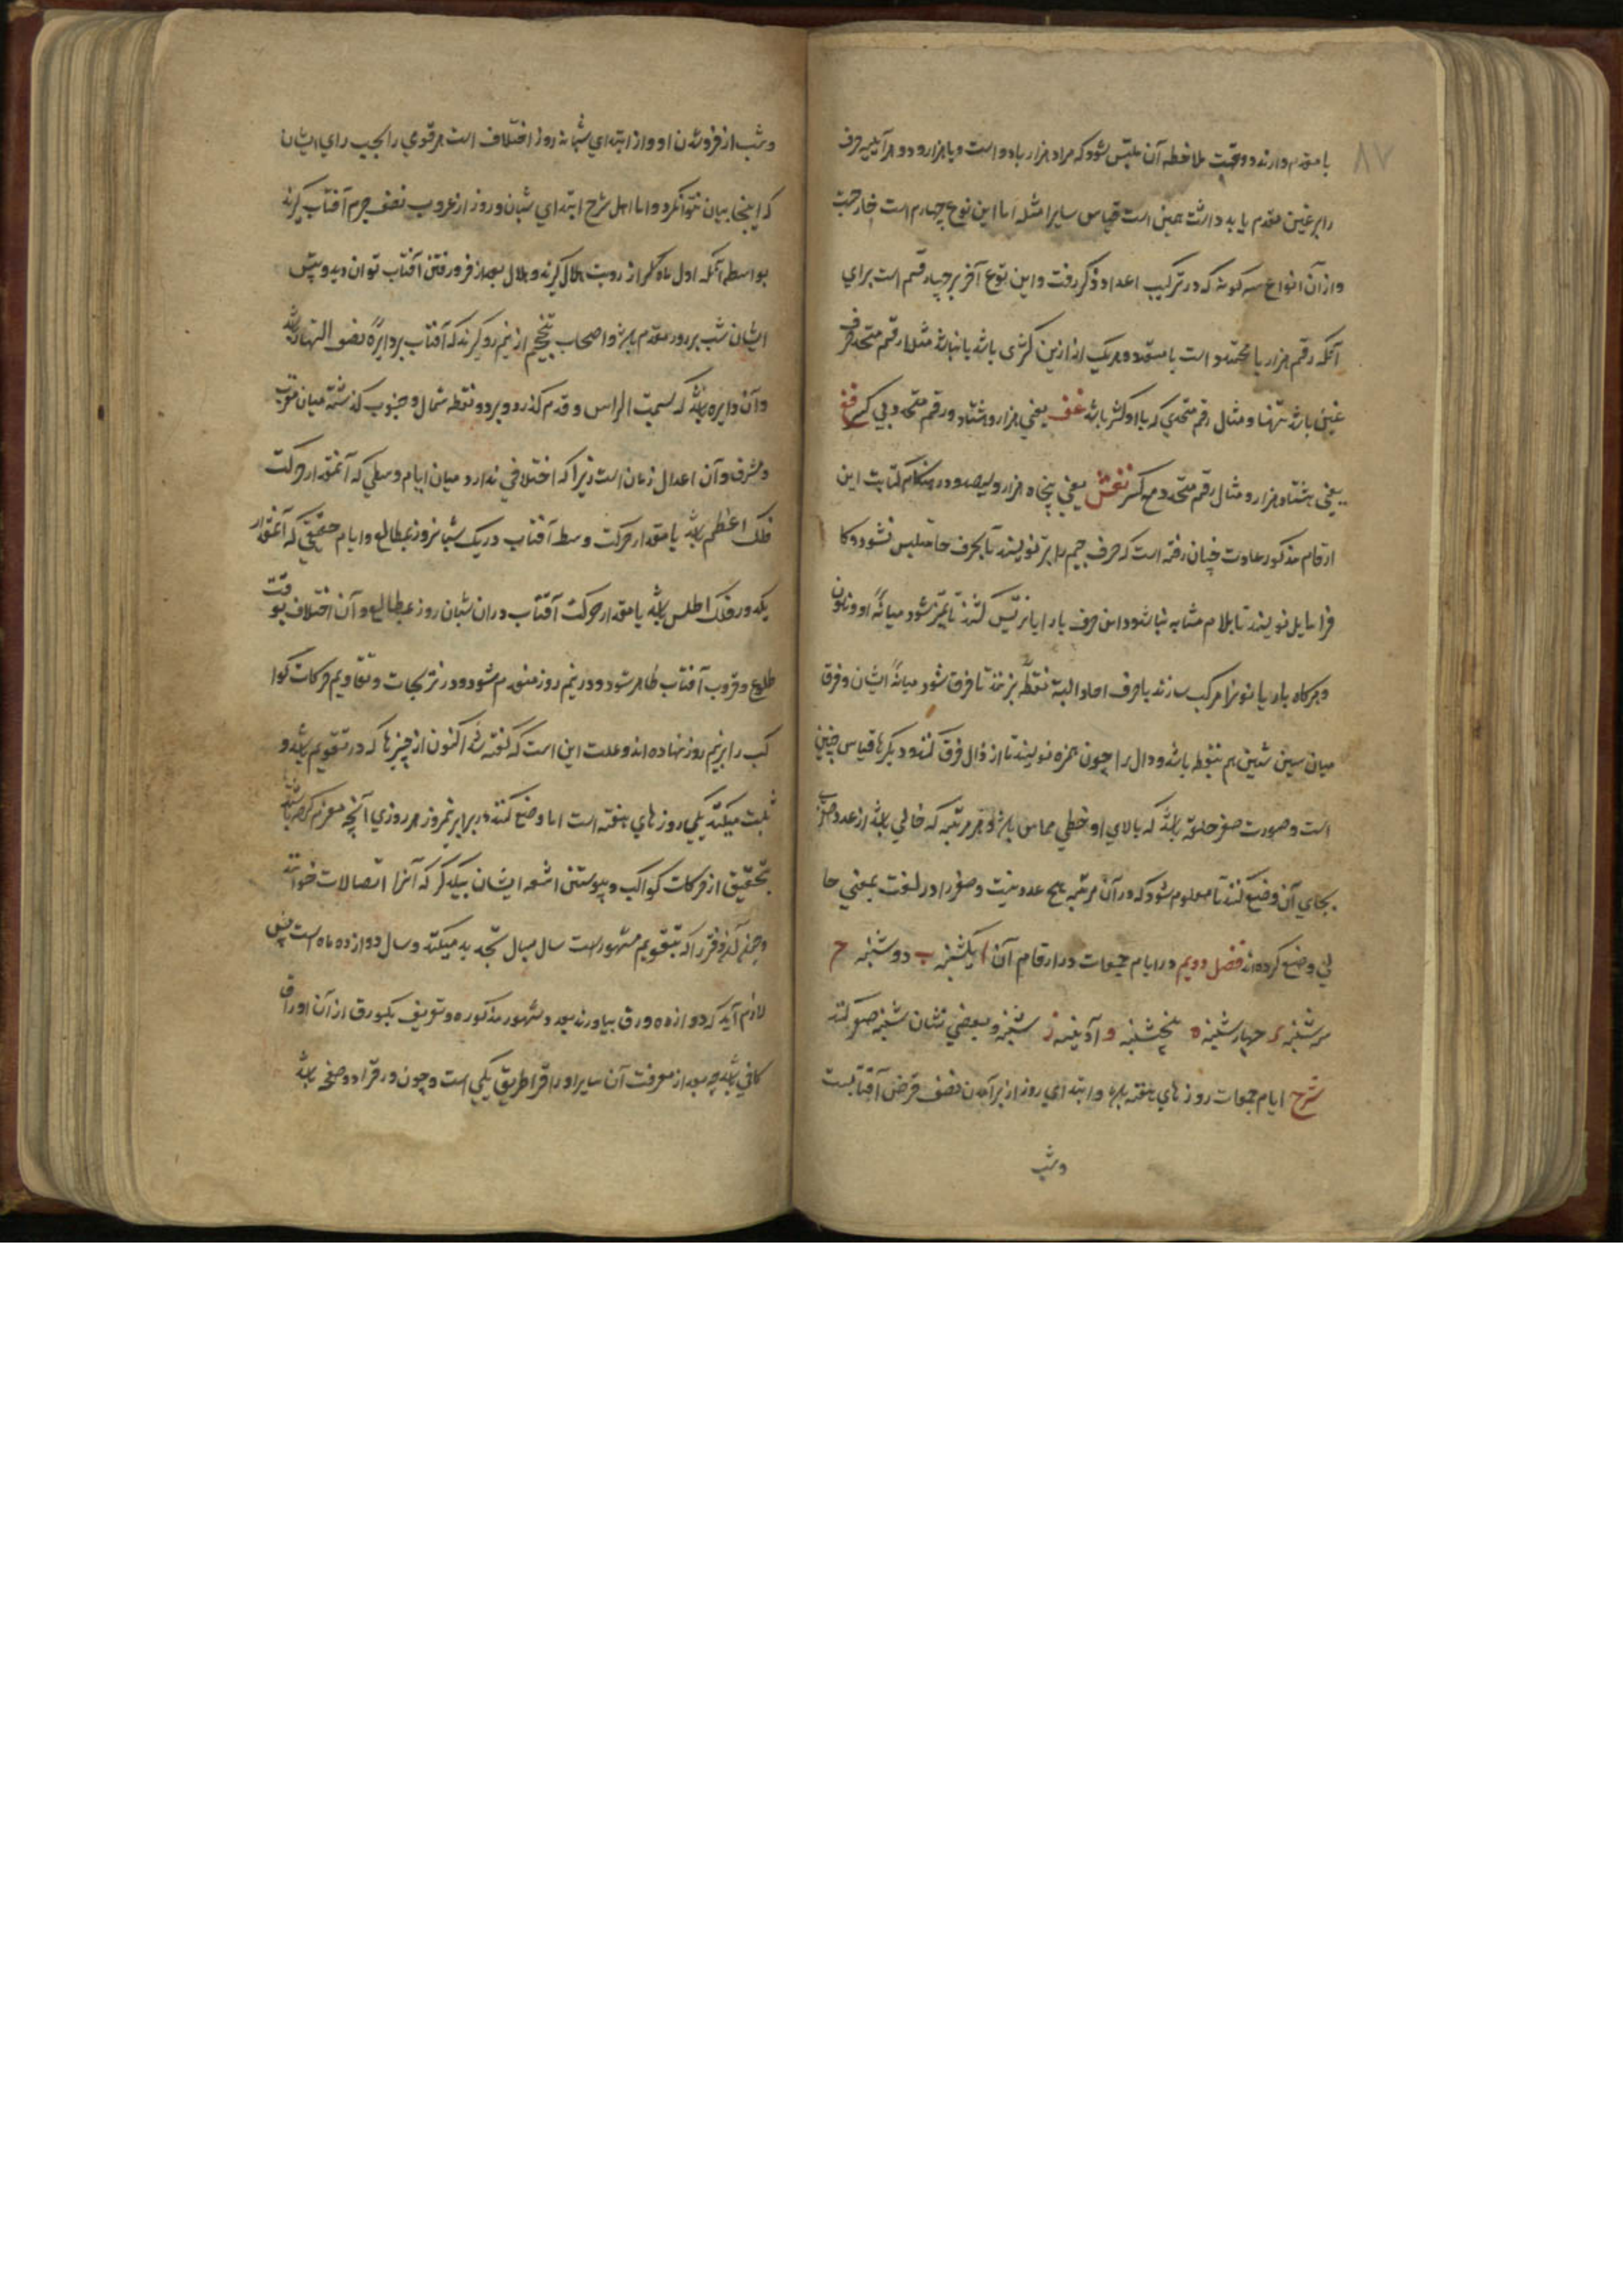 ۸۷
با مقدم دارند دو محبت ملاحظه آن ملتبس شود که مراد هزار باد و است و یا هزار و دو هر آینه حرف
را بر غین مقدم باید داشت همین است قیاس سایر امثله اما این نوع چهارم است خارجیت
و از آن انواع سه گونه که در ترکیب اعداد ذکر رفت و این نوع آخر بر چهار قسم است برای
آنکه رقم هزار یا متحد است یا متعدد و هر یک از ازین کسری باشد یا نباشد مثلا رقم متحد حرف
غین باشد تنها و مثال رقم متحدی که با او کسر باشد غف یعنی هزار و هشتاد و رقم متحد و بی کسر فغ
یعنی هشتاد هزار و مثال رقم متعدد مع کسر نغش یعنی پنجاه هزار و سیصد و در هنگام کتابت این
ارقام مذکور عادت چنان رفته است که حرف جیم را بتر نویسند تا بحرف حا ملتبس نشود و کا
فرا مایل نویسند تا بلام مشابه نباشد و این حرف یا را تیس کنند تا تمیز شود میانه او و نون
و هر کاه یا و یا نونرا مرکب سازند با حرف احاد البته نقطه بر نهند تا فرق شود میانه ایشان و فرق
میان سین شین هم بنقطه باشد و دال را چون همزه نویسند تا از ذال فرق کنند و دیگرها قیاس چنین
است و صورت صفر حلقه باشد که بالای او خطی مماس باشد و هر مرتبه که خالی باشد از عدد صفر
بجای آن وضع کنند تا معلوم شود که در آن مرتبه هیچ عدد نیست و صفر را در لغت بمعنی خا
لی وضع کرده‌اند فصل دویم در ایام جمعات در ارقام آن ا یکشنبه ب دوشنبه ح
سه شنبه د چهارشنبه ه پنجشنبه و آدینه ز شنبه و بعضی نشان شنبه صفر کنند
شرح ایام جمعات روزهای هفته باشد و ابتدای روز از برآمدن نصف قرص آفتابست
وشب
وشب از فروشدن او و از ابتدای شبانه روز اختلاف است هر قومی را بحسب رای ایشان
که اینجا بیان نتوانکرد و اما اهل شرح ابتدای شبان و روز از غروب نصف جرم آفتاب گیرند
بواسطه آنکه اول ماه کلر از رویت هلال گیرند و هلال بعد از فرو رفتن آفتاب توان دید و پیش
ایشان شب بر روز مقدم باشد و اصحاب تنجیم از نیم رو گیرند که آفتاب بر دایره نصف النهار باشد
و آن دایره باشد که بسمت الراس و قدم گذرد و بر دو نقطه شمال و جنوب گذشته میان مغرب
و مشرق و آن اعدال زمان است زیرا که اختلافی ندارد میان ایام وسطی که آنمقدار حرکت
فلک اعظم باشد با مقدار حرکت وسط آفتاب در یک شبانروز بمطالع و ایام حقیقی که آنمقدار
یکدور فلک اطلس باشد با مقدار حرکت آفتاب در آن شبان روز بمطالع و آن اختلاف بوقت
طلوع و غروب آفتاب ظاهر شود و در نیم روز منعدم شود و در تریجات و تقاویم حرکات کوا
کب را بر نیم روز نهاده اند و علت این است که گفته شد اکنون از چیزها که در تقویم باشد و
ثبت میکنند یکی روزهای هفته است اما وضع کنند در برابر نیمروز هر روزی آنچه معزم کرده باشند
بتحقیق از حرکات کواکب و پیوستن اشعه ایشان بیکدگر که آنرا اتصالات خوانند
و چنانکه دفتر را که بتقویم مشهور است سال بسال تجدید میکنند و سال دوازده ماه است پس
لازم آید که دوازده ورق بیاورند بعدد شهور مذکوره و تعریف یکورق از آن اوراق
کافی باشد چه بعد از معرفت آن سایر اوراق را طریق یکی است و چون ورق را دو صفحه باشد